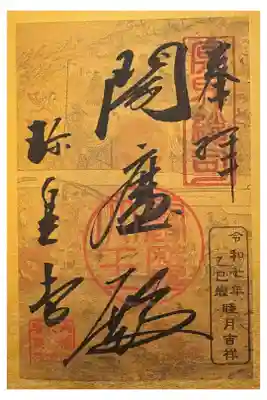 奉拝
閻魔殿
珍皇寺
令和七年
乙巳歳 睦月吉祥